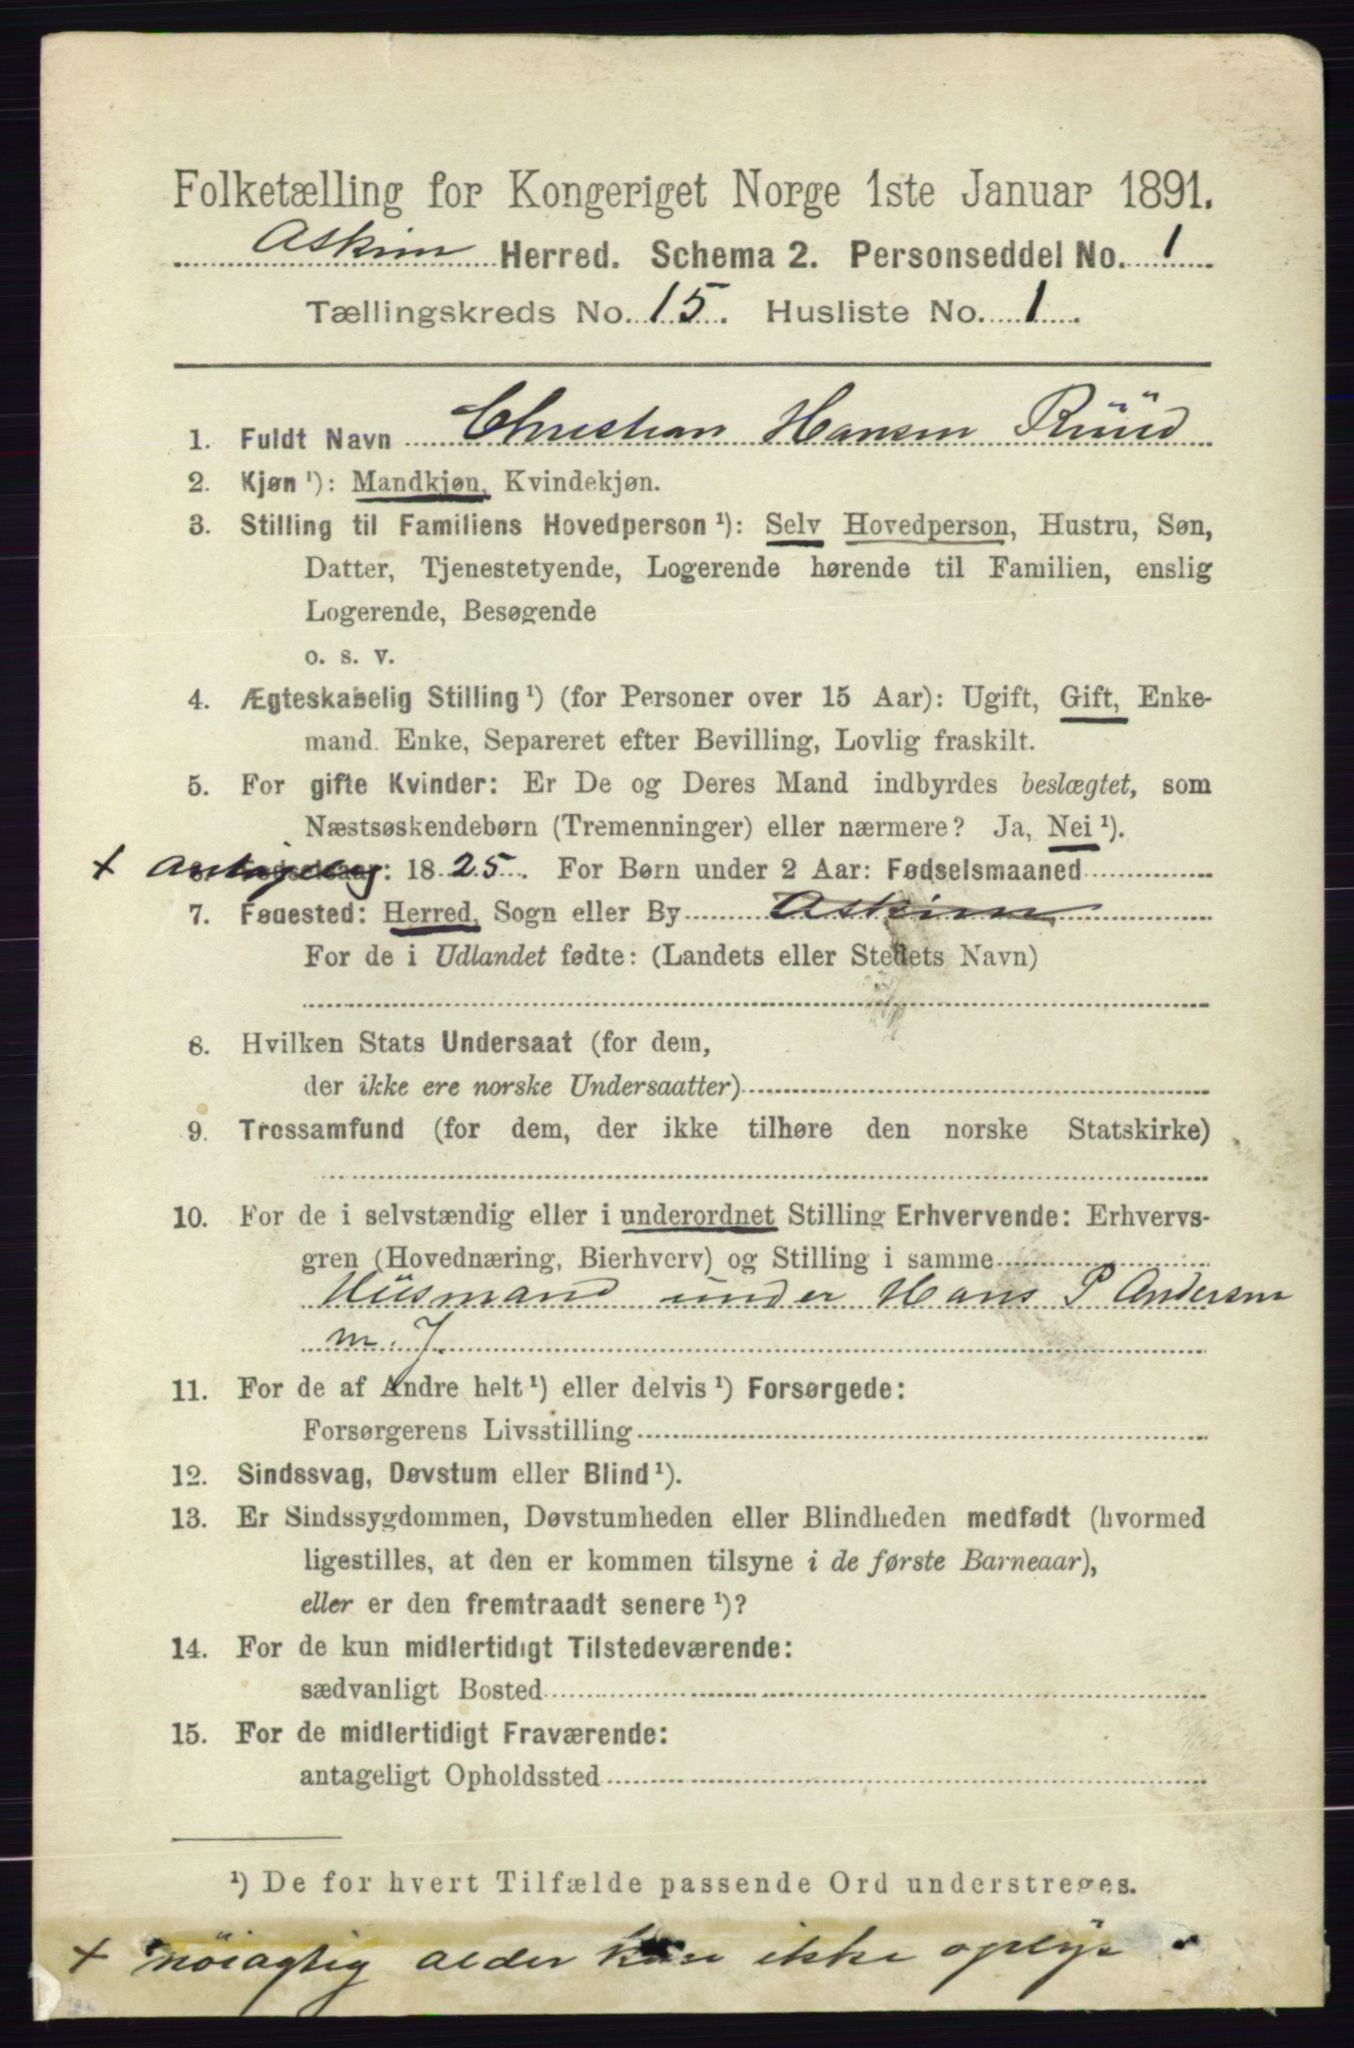 Folketælling for Kongeriget Norge 1ste Januar 1891.
Askim Herred. Schema 2. Personseddel No. 1
Tællingskreds No. 15. Husliste No. 1.
1. Fuldt Navn Christian Hansen Rüüd
2. Kjøn ¹): Mandkjøn, Kvindekjøn.
3. Stilling til Familiens Hovedperson ¹): Selv Hovedperson, Hustru, Søn,
Datter, Tjenestetyende, Logerende hørende til Familien, enslig
Logerende, Besøgende
o. s. v.
4. Ægteskabelig Stilling ¹) (for Personer over 15 Aar): Ugift, Gift, Enke-
mand. Enke, Separeret efter Bevilling, Lovlig fraskilt.
5. For gifte Kvinder: Er De og Deres Mand indbyrdes beslægtet, som
Næstsøskendebørn (Tremenninger) eller nærmere? Ja, Nei ¹).
+ : 1825. For Børn under 2 Aar: Fødselsmaaned
7. Fødested: Herred, Sogn eller By Askim
For de i Udlandet fødte: (Landets eller Stedets Navn)
8. Hvilken Stats Undersaat (for dem,
der ikke ere norske Undersaatter)
9. Trossamfund (for dem, der ikke tilhøre den norske Statskirke)
10. For de i selvstændig eller i underordnet Stilling Erhvervende: Erhvervs-
gren (Hovednæring, Bierhverv) og Stilling i samme
Hüsmand under Hans P Andersen
m. J.
11. For de af Andre helt ¹) eller delvis ¹) Forsørgede:
Forsørgerens Livsstilling
12. Sindssvag, Døvstum eller Blind ¹).
13. Er Sindssygdommen, Døvstumheden eller Blindheden medfødt (hvormed
ligestilles, at den er kommen tilsyne i de første Barneaar),
eller er den fremtraadt senere ¹)?
14. For de kun midlertidigt Tilstedeværende:
sædvanligt Bosted
15. For de midlertidigt Fraværende:
antageligt Opholdssted
¹) De for hvert Tilfælde passende Ord understreges.
+ nöiagtig alder kan ikke oplys